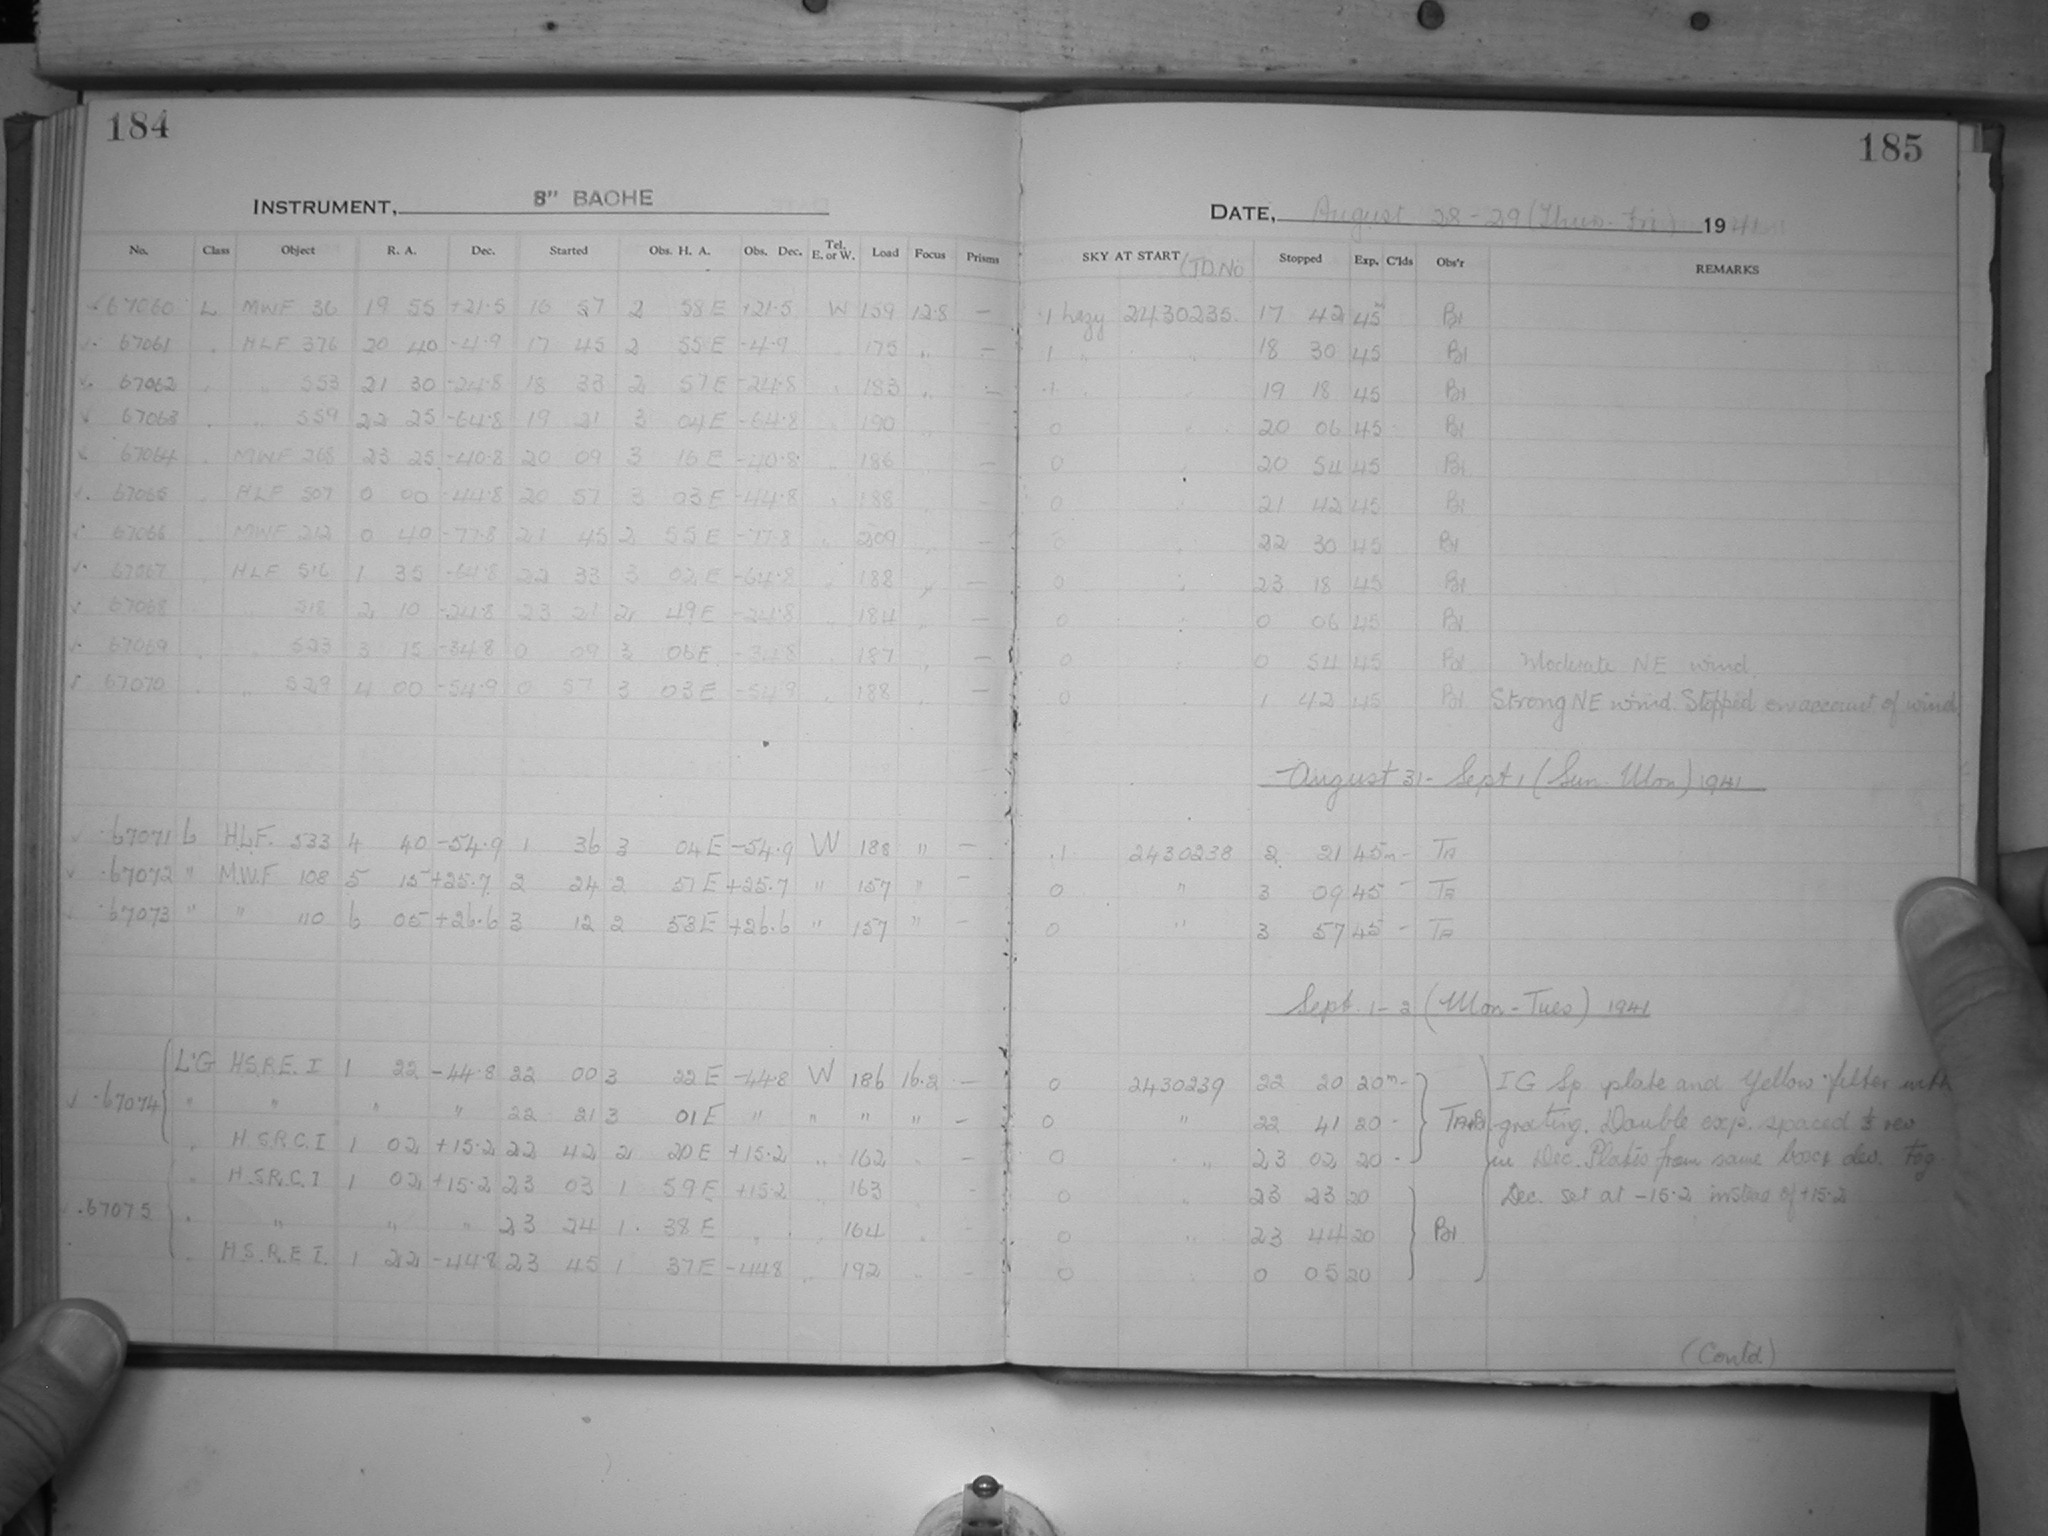 184
INSTRUMENT, 8" BACHE
No. Class Object R. A. Dec. Started Obs. H. A. Obs. Dec. Tel. E. or W. Load Focus Prisms
67060 L MWF 36 19 55 +21.5 16 57 2 58 E +21.5 W 159 12.8 —
67061 HLF 376 20 40 -4.9 17 45 2 55 E -4.9 175 " —
67062 " 553 21 30 -24.8 18 33 2 57 E -24.8 183 " —
67063 " 559 22 25 -64.8 19 21 3 04 E -64.8 190
67064 MWF 268 23 25 -40.8 20 09 3 16 E -40.8 186 —
67065 HLF 507 0 00 -44.8 20 57 3 03 E -44.8 188 —
67066 MWF 212 0 40 -77.8 21 45 2 55 E -77.8 209 —
67067 HLF 516 1 35 -64.8 22 33 3 02 E -64.8 188 " —
67068 " 218 2 10 -24.8 23 21 2 49 E -24.8 184 " —
67069 " 523 3 15 -34.8 0 09 3 06 E -34.8 187 " —
67070 " 529 4 00 -54.9 0 57 3 03 E -54.9 188 " —
67071 L HLF. 533 4 40 -54.9 1 36 3 04 E -54.9 W 188 " —
67072 " M.W.F 108 5 15 +25.7 2 24 2 51 E +25.7 " 157 " —
67073 " " 110 6 05 +26.6 3 12 2 53 E +26.6 " 157 " —
67074 L'G H.S.R.E. I 1 22 -44.8 22 00 3 22 E -44.8 W 186 16.2 —
" " " " 22 21 3 01 E " " " " —
" H.S.R.C. I 1 02 +15.2 22 42 2 20 E +15.2 " 162 —
67075 " H.S.R.C. I 1 02 +15.2 23 03 1 59 E +15.2 163
" " " 23 24 1 38 E " 164
H.S.R.E I. 1 22 -44.8 23 45 1 37 E -44.8 " 192 —
185
DATE, August 28-29 (Thurs.-Fri) 1941
SKY AT START (J.D. No Stopped Exp. C'lds Obs'r REMARKS
.1 hazy 2430235. 17 42 45m Bl
1 " " 18 30 45 Bl
.1 19 18 45 Bl
0 " 20 06 45 Bl
0 " 20 54 45 Bl
0 " 21 42 45 Bl
0 " 22 30 45 Bl
0 " 23 18 45 Bl
0 " 0 06 45 Bl
0 " 0 54 45 Bl Moderate NE wind
0 1 42 45 Bl Strong NE wind. Stopped on account of wind
August 31 - Sept 1 (Sun-Mon) 1941
.1 2430238 2 21 45m - TA
0 " 3 09 45 - TA
0 " 3 57 45 - TA
Sept. 1-2 (Mon-Tues) 1941
0 2430239 22 20 20m - IG Sp. plate and Yellow filter with
0 " 22 41 20 - grating. Double exp. spaced
0 " 23 02 20 - in Dec. Plates from same box & dev. Fog.
0 " 23 23 20 Dec. set at -15.2 instead of +15.2
0 " 23 44 20 Bl
0 0 05 20
(Contd)